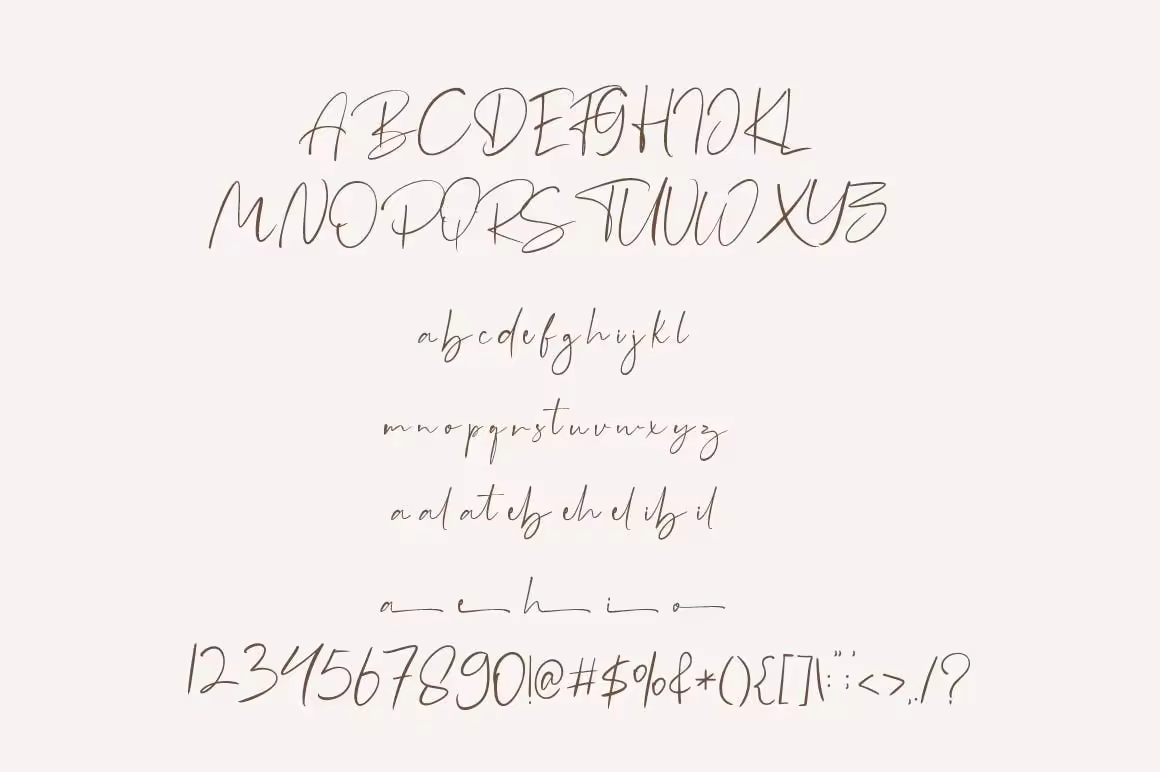 ABCDEFGHIJKL
MNOPQRSTUVWXYZ
abcdefghijkl
mnopqrstuvwxyz
a al at eb eh el ib il
a e h i o
1234567890!@#$%&*(){[]\:;"'<>,./?